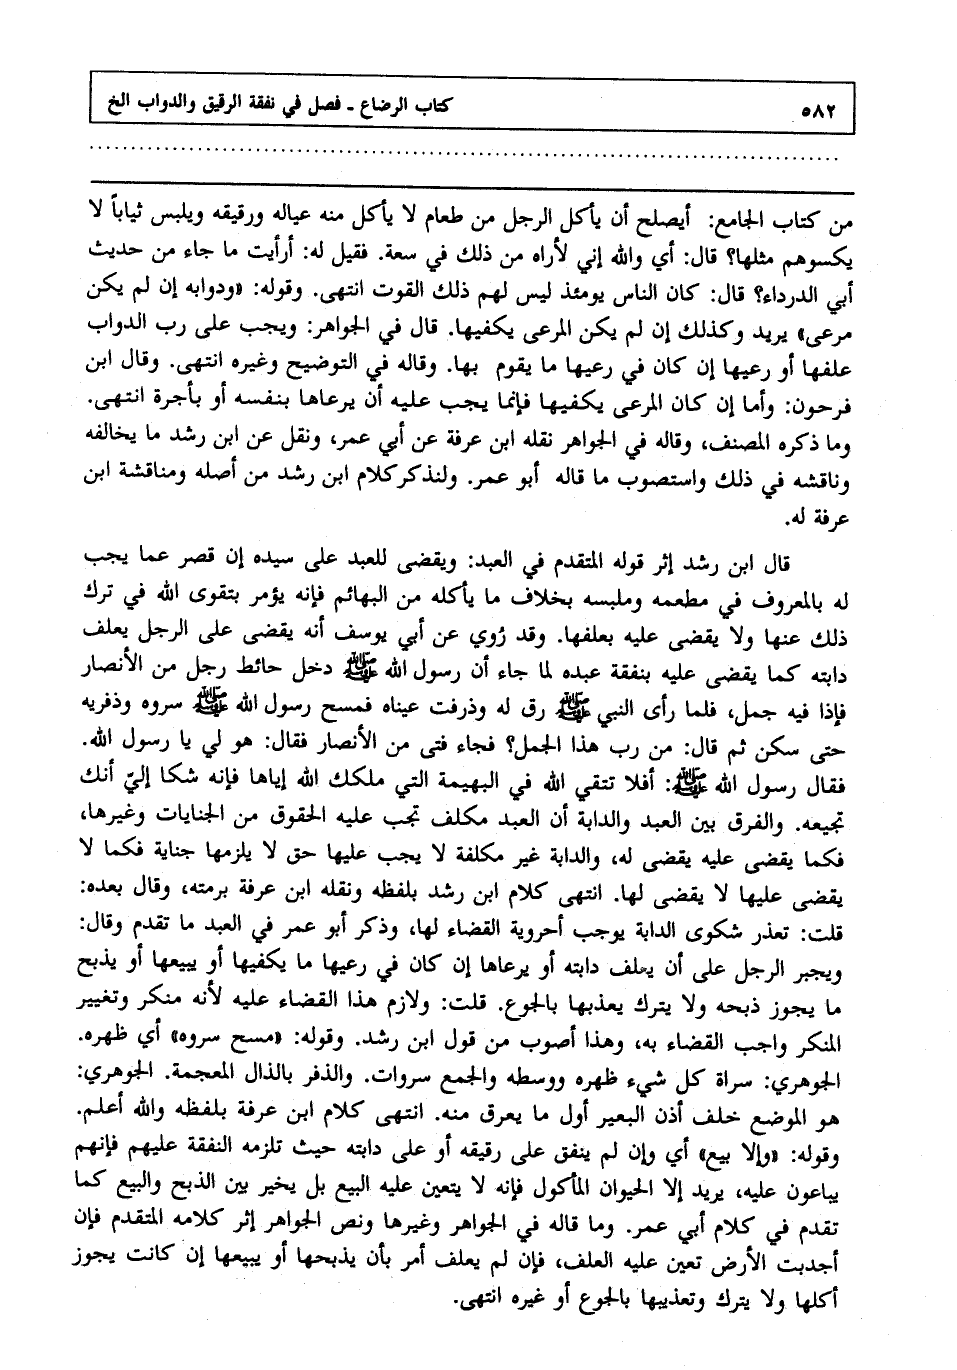 ٥٨٢
كتاب الرضاع ـ فصل في نفقة الرقيق والدواب الخ
من كتاب الجامع: أيصلح أن يأكل الرجل من طعام لا يأكل منه عياله ورقيقه ويلبس ثياباً لا
يكسوهم مثلها؟ قال: أي والله إني لأراه من ذلك في سعة. فقيل له: أرأيت ما جاء من حديث
أبي الدرداء؟ قال: كان الناس يومئذ ليس لهم ذلك القوت انتهى. وقوله: «ودوابه إن لم يكن
مرعى» يريد وكذلك إن لم يكن المرعى يكفيها. قال في الجواهر: ويجب على رب الدواب
علفها أو رعيها إن كان في رعيها ما يقوم بها. وقاله في التوضيح وغيره انتهى. وقال ابن
فرحون: وأما إن كان المرعى يكفيها فإنما يجب عليه أن يرعاها بنفسه أو بأجرة انتهى.
وما ذكره المصنف، وقاله في الجواهر نقله ابن عرفة عن أبي عمر، ونقل عن ابن رشد ما يخالفه
وناقشه في ذلك واستصوب ما قاله أبو عمر. ولنذكر كلام ابن رشد من أصله ومناقشة ابن
عرفة له.
قال ابن رشد إثر قوله المتقدم في العبد: ويقضى للعبد على سيده إن قصر عما يجب
له بالمعروف في مطعمه وملبسه بخلاف ما يأكله من البهائم فإنه يؤمر بتقوى الله في ترك
ذلك عنها ولا يقضى عليه بعلفها. وقد رُوي عن أبي يوسف أنه يقضى على الرجل يعلف
دابته كما يقضى عليه بنفقة عبده لما جاء أن رسول الله ﷺ دخل حائط رجل من الأنصار
فإذا فيه جمل، فلما رأى النبي ﷺ رق له وذرفت عيناه فمسح رسول الله ﷺ سروه وذفريه
حتى سكن ثم قال: من رب هذا الجمل؟ فجاء فتى من الأنصار فقال: هو لي يا رسول الله.
فقال رسول الله ﷺ: أفلا تتقي الله في البهيمة التي ملكك الله إياها فإنه شكا إليّ أنك
تجيعه. والفرق بين العبد والدابة أن العبد مكلف تجب عليه الحقوق من الجنايات وغيرها،
فكما يقضى عليه يقضى له، والدابة غير مكلفة لا يجب عليها حق لا يلزمها جناية فكما لا
يقضى عليها لا يقضى لها. انتهى كلام ابن رشد بلفظه ونقله ابن عرفة برمته، وقال بعده:
قلت: تعذر شكوى الدابة يوجب أحروية القضاء لها، وذكر أبو عمر في العبد ما تقدم وقال:
ويجبر الرجل على أن يعلف دابته أو يرعاها إن كان في رعيها ما يكفيها أو يبيعها أو يذبح
ما يجوز ذبحه ولا يترك يعذبها بالجوع. قلت: ولازم هذا القضاء عليه لأنه منكر وتغيير
المنكر واجب القضاء به، وهذا أصوب من قول ابن رشد. وقوله: «مسح سروه» أي ظهره.
الجوهري: سراة كل شيء ظهره ووسطه والجمع سروات. والذفر بالذال المعجمة. الجوهري:
هو الموضع خلف أذن البعير أول ما يعرق منه. انتهى كلام ابن عرفة بلفظه والله أعلم.
وقوله: «وإلا بيع» أي وإن لم ينفق على رقيقه أو على دابته حيث تلزمه النفقة عليهم فإنهم
يباعون عليه، يريد إلا الحيوان المأكول فإنه لا يتعين عليه البيع بل يخير بين الذبح والبيع كما
تقدم في كلام أبي عمر. وما قاله في الجواهر وغيرها ونص الجواهر إثر كلامه المتقدم فإن
أجدبت الأرض تعين عليه العلف، فإن لم يعلف أمر بأن يذبحها أو يبيعها إن كانت يجوز
أكلها ولا يترك وتعذيبها بالجوع أو غيره انتهى.